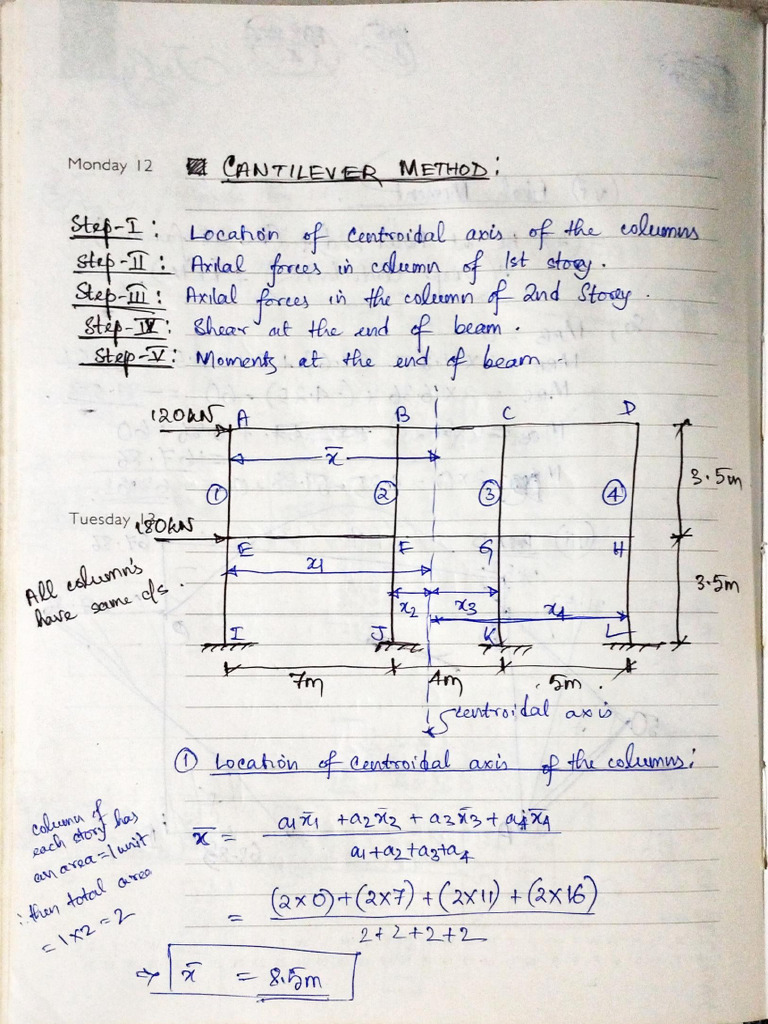 Monday 12
CANTILEVER METHOD:
Step-I: Location of centroidal axis of the columns
Step-II: Axilal forces in column of 1st story.
Step-III: Axilal forces in the column of 2nd Storey.
Step-IV: Shear at the end of beam.
Step-V: Moments at the end of beam
120kN A B C D
x̄
① ② ③ ④ 3.5m
Tuesday 13 180kN
E F G H
x1
All column's
have same c/s.
x2 x3 x4
3.5m
I J K L
7m 4m 5m.
centroidal axis
① Location of centroidal axis of the columns:
column of
each story has
an area = 1 unit
∴ then total area
= 1×2 = 2
x̄ = a1x̄1 + a2x̄2 + a3x̄3 + a4x̄4
a1+a2+a3+a4
= (2×0)+(2×7)+(2×11)+(2×16)
2+2+2+2
⇒ x̄ = 8.5m